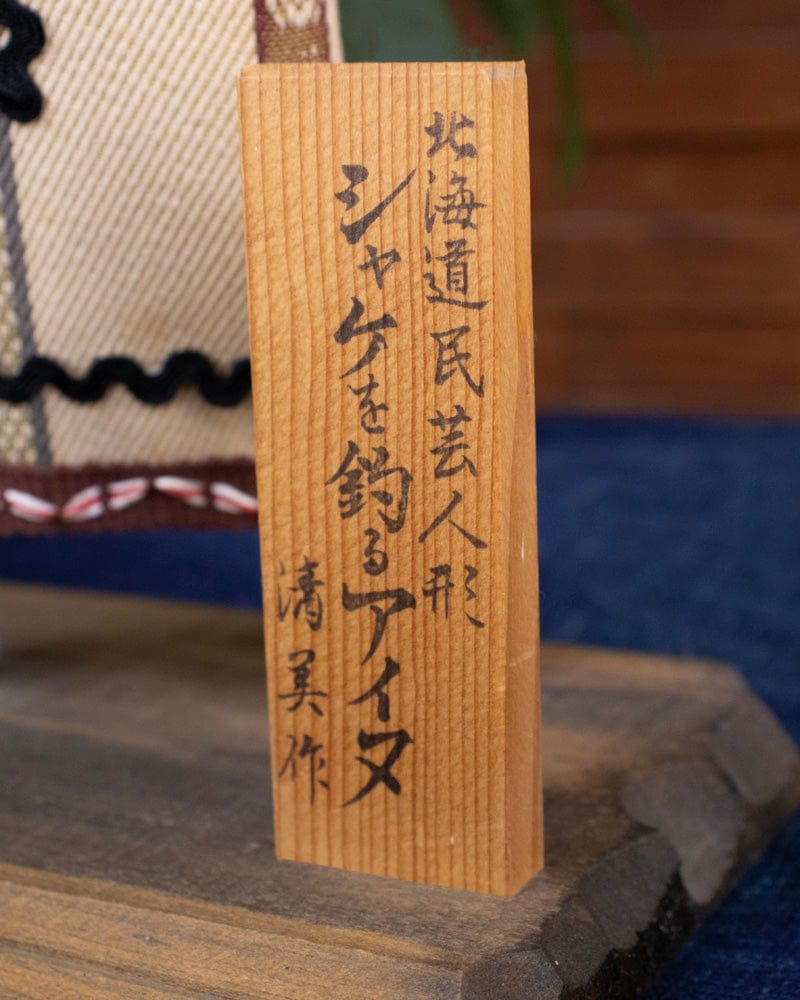 北海道民芸人形
シャケを釣るアイヌ
清美作